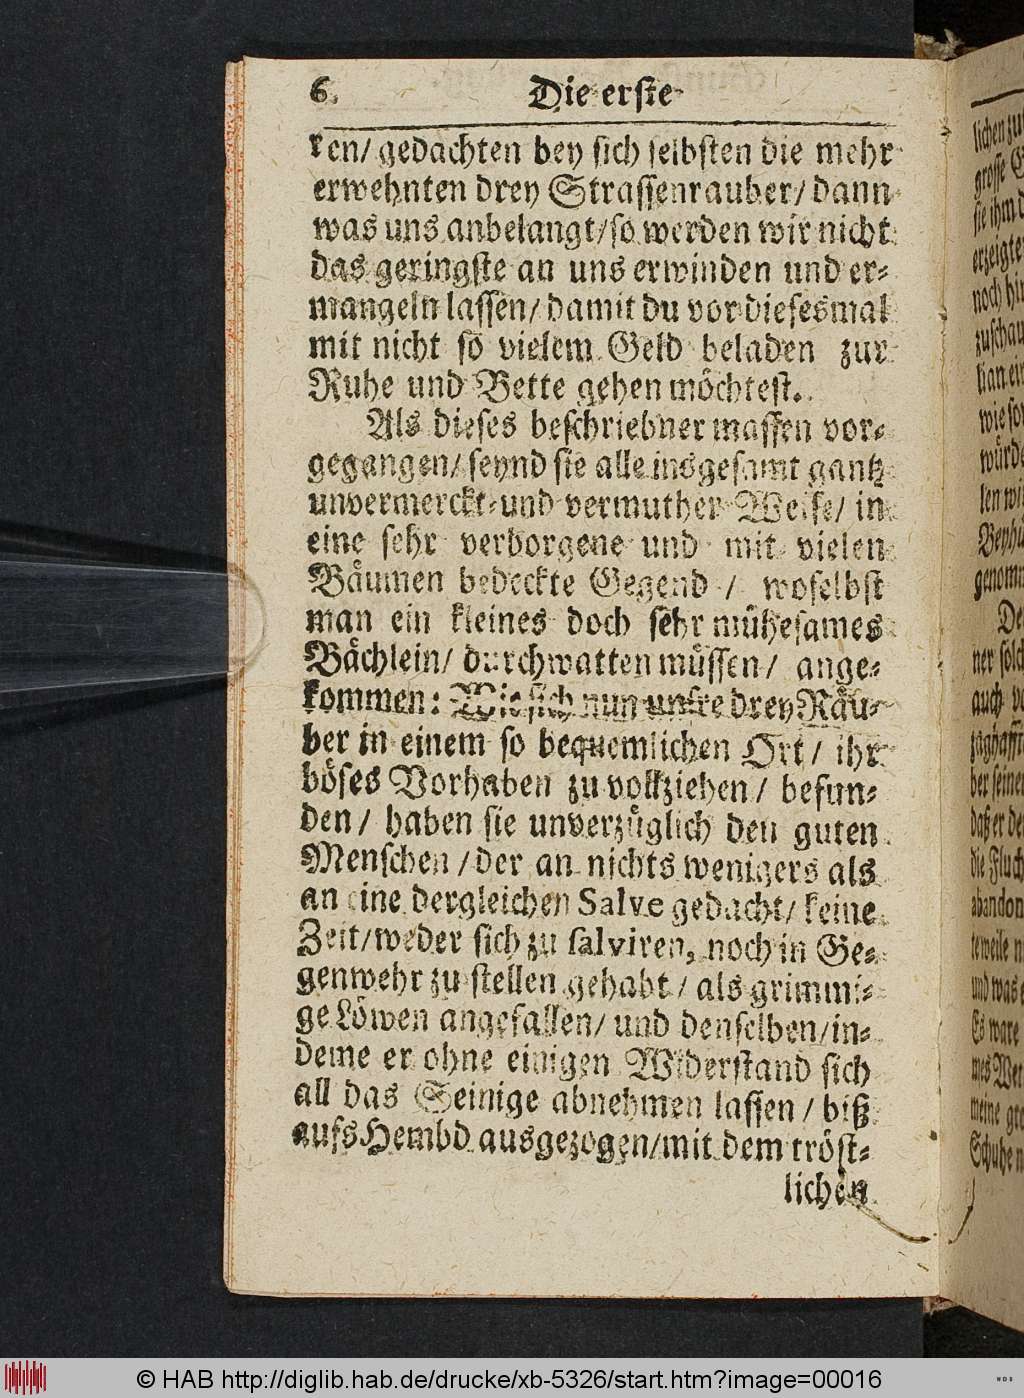 6. Die erste
ren/ gedachten bey sich selbsten die mehr
erwehnten drey Strassenrauber/ dann
was uns anbelangt/ so werden wir nicht
das geringste an uns erwinden und er-
mangeln lassen/ damit du vor diesesmal
mit nicht so vielem Geld beladen zur
Ruhe und Bette gehen möchtest.
Als dieses beschriebner massen vor-
gegangen/ seynd sie alle insgesamt gantz
unvermerckt- und vermuther Weise/ in
eine sehr verborgene und mit vielen
Bäumen bedeckte Gegend / woselbst
man ein kleines doch sehr mühesames
Bächlein/ durchwatten müssen/ ange-
kommen: Wie sich nun unsre drey Räu-
ber in einem so bequemlichen Ort/ ihr
böses Vorhaben zu vollziehen/ befun-
den/ haben sie unverzüglich den guten
Menschen/ der an nichts wenigers als
an eine dergleichen Salve gedacht/ keine
Zeit/ weder sich zu salviren, noch in Ge-
genwehr zu stellen gehabt/ als grimmi-
ge Löwen angefallen/ und denselben/ in-
deme er ohne einigen Widerstand sich
all das Seinige abnehmen lassen/ biß
aufs Hembd ausgezogen/ mit dem tröst-
lichen
lichen zu
grosse
sie ihm
noch
wie
len wi
genomm
ner solch
auch
ber seine
daß er de
die Fluch
abandon
und was
Es ware
meine
Schuhe
© HAB http://diglib.hab.de/drucke/xb-5326/start.htm?image=00016